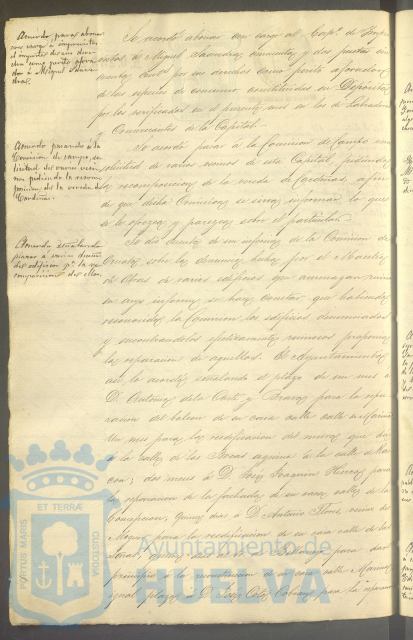 Acuerdo para abonar
con cargo a imprevistos
el importe de sus dere-
chos como perito afora-
dor á Miguel Saave-
dra.
Se acordó abonar con cargo al Capº. de Impre-
vistos, á Miguel Saavedra, cincuenta y dos pesetas cin-
cuenta por sus derechos como perito aforador
de las especies de consumo, constituidas en Depósitos
por los verificados en el presente mes en los de Labradores
y Comerciantes de la Capital.
Acuerdo pasando á la
Comisión de campo, so-
licitud de varios veci-
nos pidiendo la recom-
posicion de la vereda de
Cardeñas.
Se acordó pasar á la Comision de Campo una
solicitud de varios vecinos de esta Capital, pidiendo
la recomposicion de la vereda de Cardeñas, á fin
de que dicha Comision se sirva informar lo que
se le ofrezca y parezca sobre el particular.
Acuerdo señalando
plazos á varios dueños
de edificios pª. la re-
composicion de ellos.
Se dió cuenta de un informe de la Comision de
Ornato sobre las denuncias hechas por el Maestro
de Obras de varios edificios que amenazan ruina
en cuyo informe se hace constar, que habiendo
reconocido la Comision los edificios denunciados
y encontrandolos efectivamente ruinosos proponen
la reparacion de aquellos. El Ayuntamiento
asi lo acordó, señalando el plazo de un mes á
D. Antonio de la Corte y para la repa-
racion del balcon de su casa calle
Un mes para la reedificacion del muro que da
á la calle de las Bocas esquina á la calle
dos meses á D. José Joaquin para
la reparacion de la fachada de su casa calle de la
Concepcion, Quince dias á D. Antonio vecino de
Moguer para la reedificacion de su casa calle
para dar
principio á la reconstruccion de la casa calle
igual plazo á D. José para la reparacion
PORTUS MARIS
ET TERRÆ
CUSTODIA
Ayuntamiento de
HUELVA